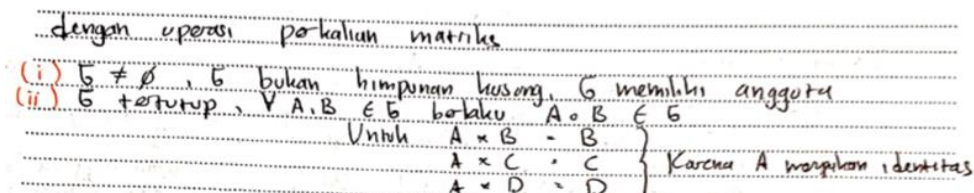 dengan operasi perkalian matriks
(i) G ≠ ∅, G bukan himpunan kosong. G memiliki anggota
(ii) G tertutup, ∀ A, B ∈ G berlaku A ∘ B ∈ G
Untuk A × B = B
A × C = C } Karena A merupakan identitas
A × D = D